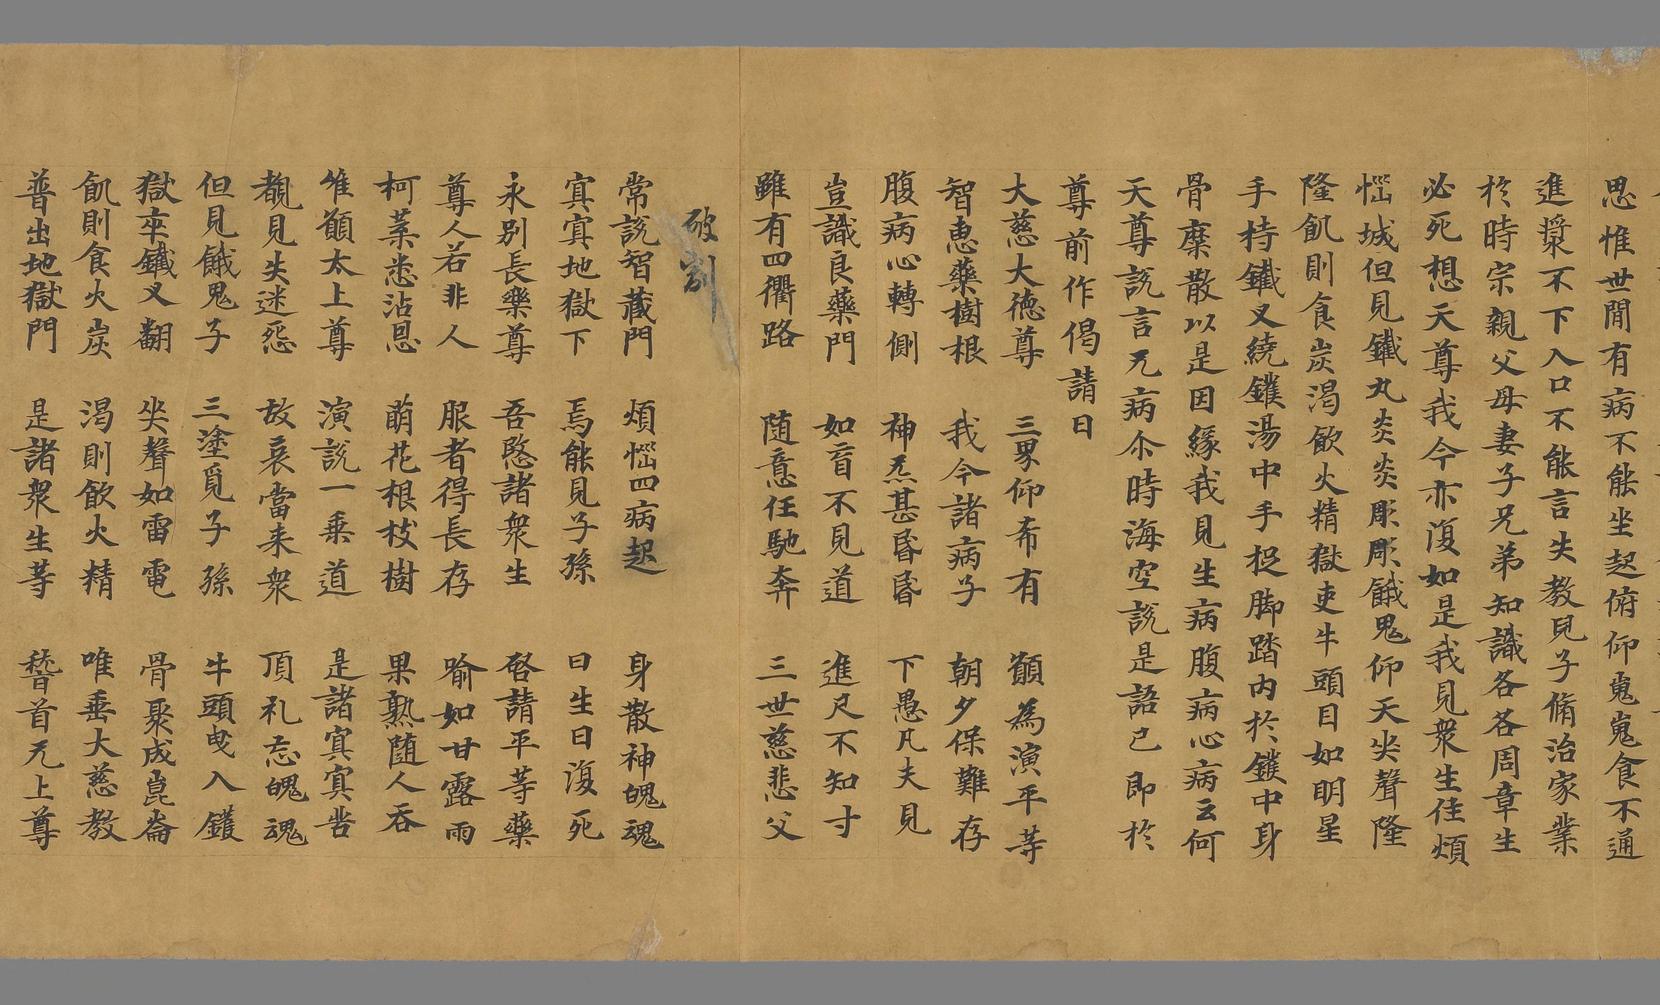 思惟世間有病不能坐起俯仰嵬嵬食不通
進漿不下入口不能言失教兒子脩治家業
於時宗親父母妻子兄弟知識各各周章生
必死想天尊我今亦復如是我見衆生住煩
惱城但見鐵丸炎炎彫彫餓鬼仰天尖聲隆
隆飢則食炭渴飲火精獄吏牛頭目如明星
手持鐵叉繞鑊湯中手捉脚踏内於鑊中身
骨糜散以是因緣我見生病腹病心病云何
天尊説言无病尒時海空説是語已即於
尊前作偈請曰
大慈大德尊 三界仰希有 願為演平等
智恵藥樹根 我今諸病子 朝夕保難存
腹病心轉側 神炁甚昏昏 下愚凡夫見
豈識良藥門 如盲不見道 進尺不知寸
雖有四衢路 随意任馳奔 三世慈悲父
破別
常説智藏門 煩惱四病起 身散神魄魂
冥冥地獄下 焉能見子孫 日生日復死
永别長樂尊 吾愍諸衆生 啓請平等藥
尊人若非人 服者得長存 喻如甘露雨
柯葉悉沾恩 萌花根枝樹 果熟随人吞
唯願太上尊 演説一乗道 是諸冥冥甞
覩見失迷怨 故哀當来衆 頂礼忘魄魂
但見餓鬼子 三塗覓子孫 牛頭曳入鑊
獄卒鐵叉翻 尖聲如雷電 骨聚成崑崙
飢則食火炭 渴則飲火精 唯垂大慈教
普出地獄門 是諸衆生等 稽首无上尊